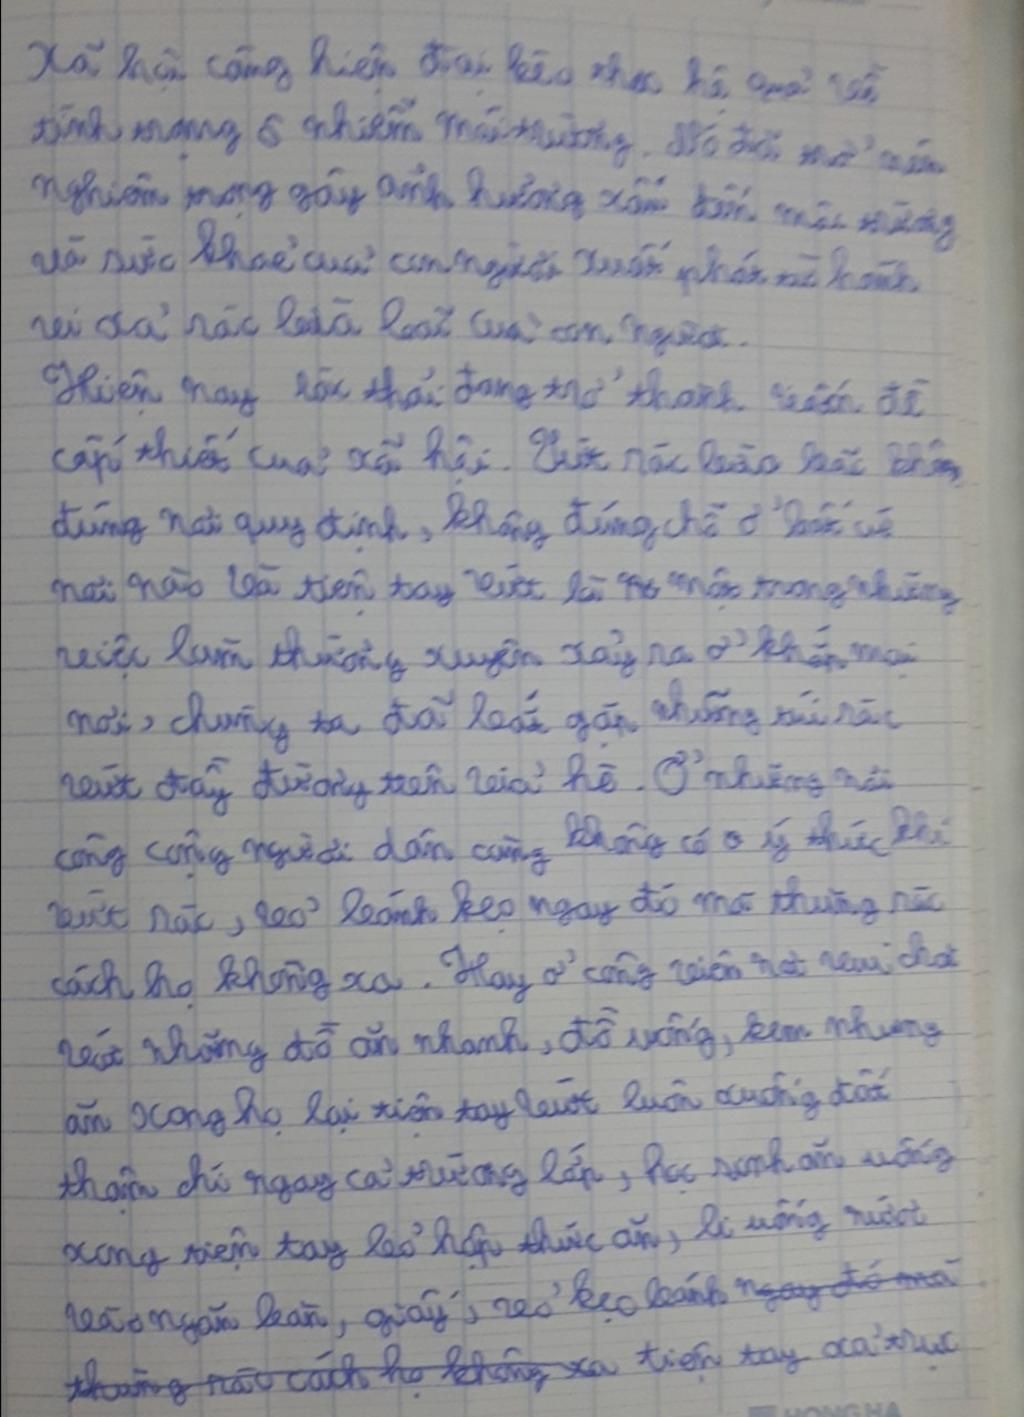 Xã hội càng hiện đại kéo theo hệ quả về
tình trạng ô nhiễm môi trường. Nó đã trở nên
nghiêm trọng gây ảnh hưởng xấu đến môi trường
và sức khoẻ của con người xuất phát từ hành
vi xả rác bừa bãi của con người.
Hiện nay rác thải đang trở thành vấn đề
cấp thiết của xã hội. Vứt rác bừa bãi không
đúng nơi quy định, không đúng chỗ ở bất cứ
nơi nào và tiện tay vứt là một trong những
việc làm thường xuyên xảy ra ở khắp mọi
nơi, chúng ta đã bắt gặp những túi rác
vứt đầy đường trên vỉa hè. Ở những nơi
công cộng người dân cũng không có ý thức khi
vứt rác, vỏ bánh kẹo ngay đó mà thùng rác
cách họ không xa. Hay ở công viên nơi vui chơi
với những đồ ăn nhanh, đồ uống, kem nhưng
ăn xong họ lại tiện tay vứt luôn xuống đất
thậm chí ngay cả trường lớp, học sinh ăn uống
xong tiện tay bỏ hộp thức ăn, li uống nước
vào ngăn bàn, giấy, vỏ kẹo bánh ngay đó mà
thùng rác cách họ không xa tiện tay xả trực
HONG HA